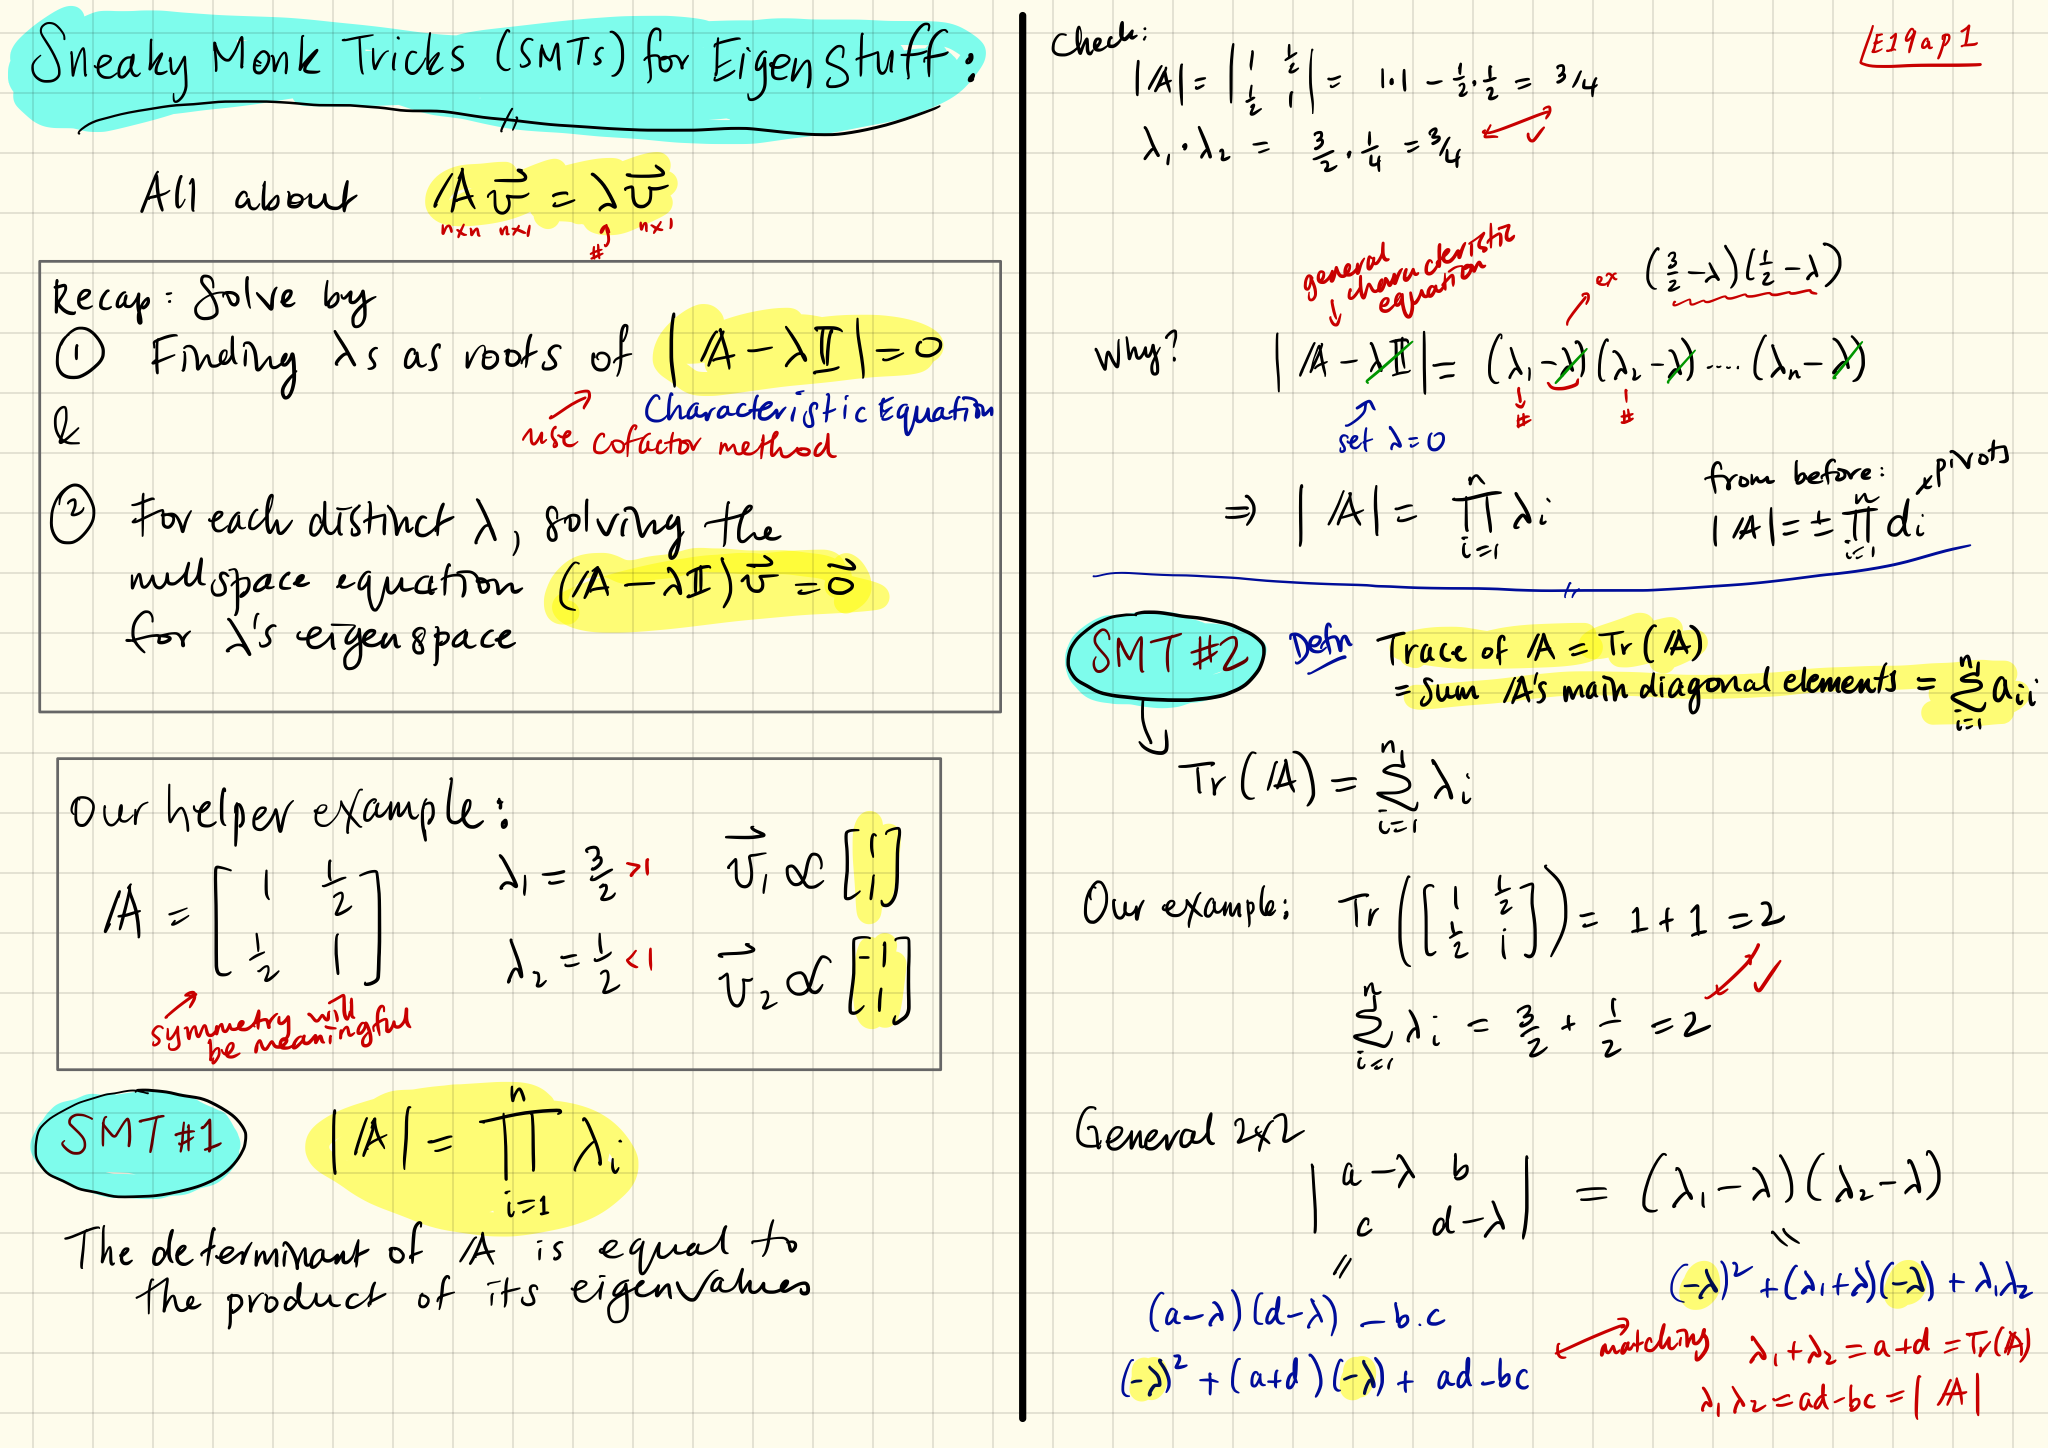 Sneaky Monk Tricks (SMTs) for Eigenstuff:
All about 𝔸v⃗ = λv⃗
n×n n×1 # n×1
Recap: Solve by
① Finding λs as roots of |𝔸 - λ𝕀| = 0
Characteristic Equation
use cofactor method
&
② For each distinct λ, solving the
nullspace equation (𝔸 - λ𝕀)v⃗ = 0⃗
for λ's eigenspace
Our helper example:
𝔸 = [1 1/2; 1/2 1]
λ₁ = 3/2 >1 v⃗₁ ∝ [1; 1]
λ₂ = 1/2 <1 v⃗₂ ∝ [-1; 1]
symmetry will
be meaningful
SMT #1 |𝔸| = ∏ᵢ₌₁ⁿ λᵢ
The determinant of 𝔸 is equal to
the product of its eigenvalues
E19a p1
Check:
|𝔸| = |1 1/2; 1/2 1| = 1·1 - 1/2·1/2 = 3/4
λ₁·λ₂ = 3/2·1/4 = 3/4 ✓
general
characteristic
equation
ex (3/2 - λ)(1/2 - λ)
Why? |𝔸 - λ𝕀| = (λ₁ - λ)(λ₂ - λ)....(λₙ - λ)
# #
set λ = 0
⇒ |𝔸| = ∏ᵢ₌₁ⁿ λᵢ
from before: pivots
|𝔸| = ± ∏ᵢ₌₁ⁿ dᵢ
SMT #2 Defn Trace of 𝔸 = Tr(𝔸)
= sum 𝔸's main diagonal elements = ∑ᵢ₌₁ⁿ aᵢᵢ
Tr(𝔸) = ∑ᵢ₌₁ⁿ λᵢ
Our example: Tr([1 1/2; 1/2 1]) = 1 + 1 = 2
∑ᵢ₌₁ⁿ λᵢ = 3/2 + 1/2 = 2 ✓
General 2x2
|a-λ b; c d-λ| = (λ₁ - λ)(λ₂ - λ)
(a-λ)(d-λ) - b.c
(-λ)² + (a+d)(-λ) + ad-bc
(-λ)² + (λ₁+λ)(-λ) + λ₁λ₂
matching λ₁+λ₂ = a+d = Tr(𝔸)
λ₁λ₂ = ad-bc = |𝔸|